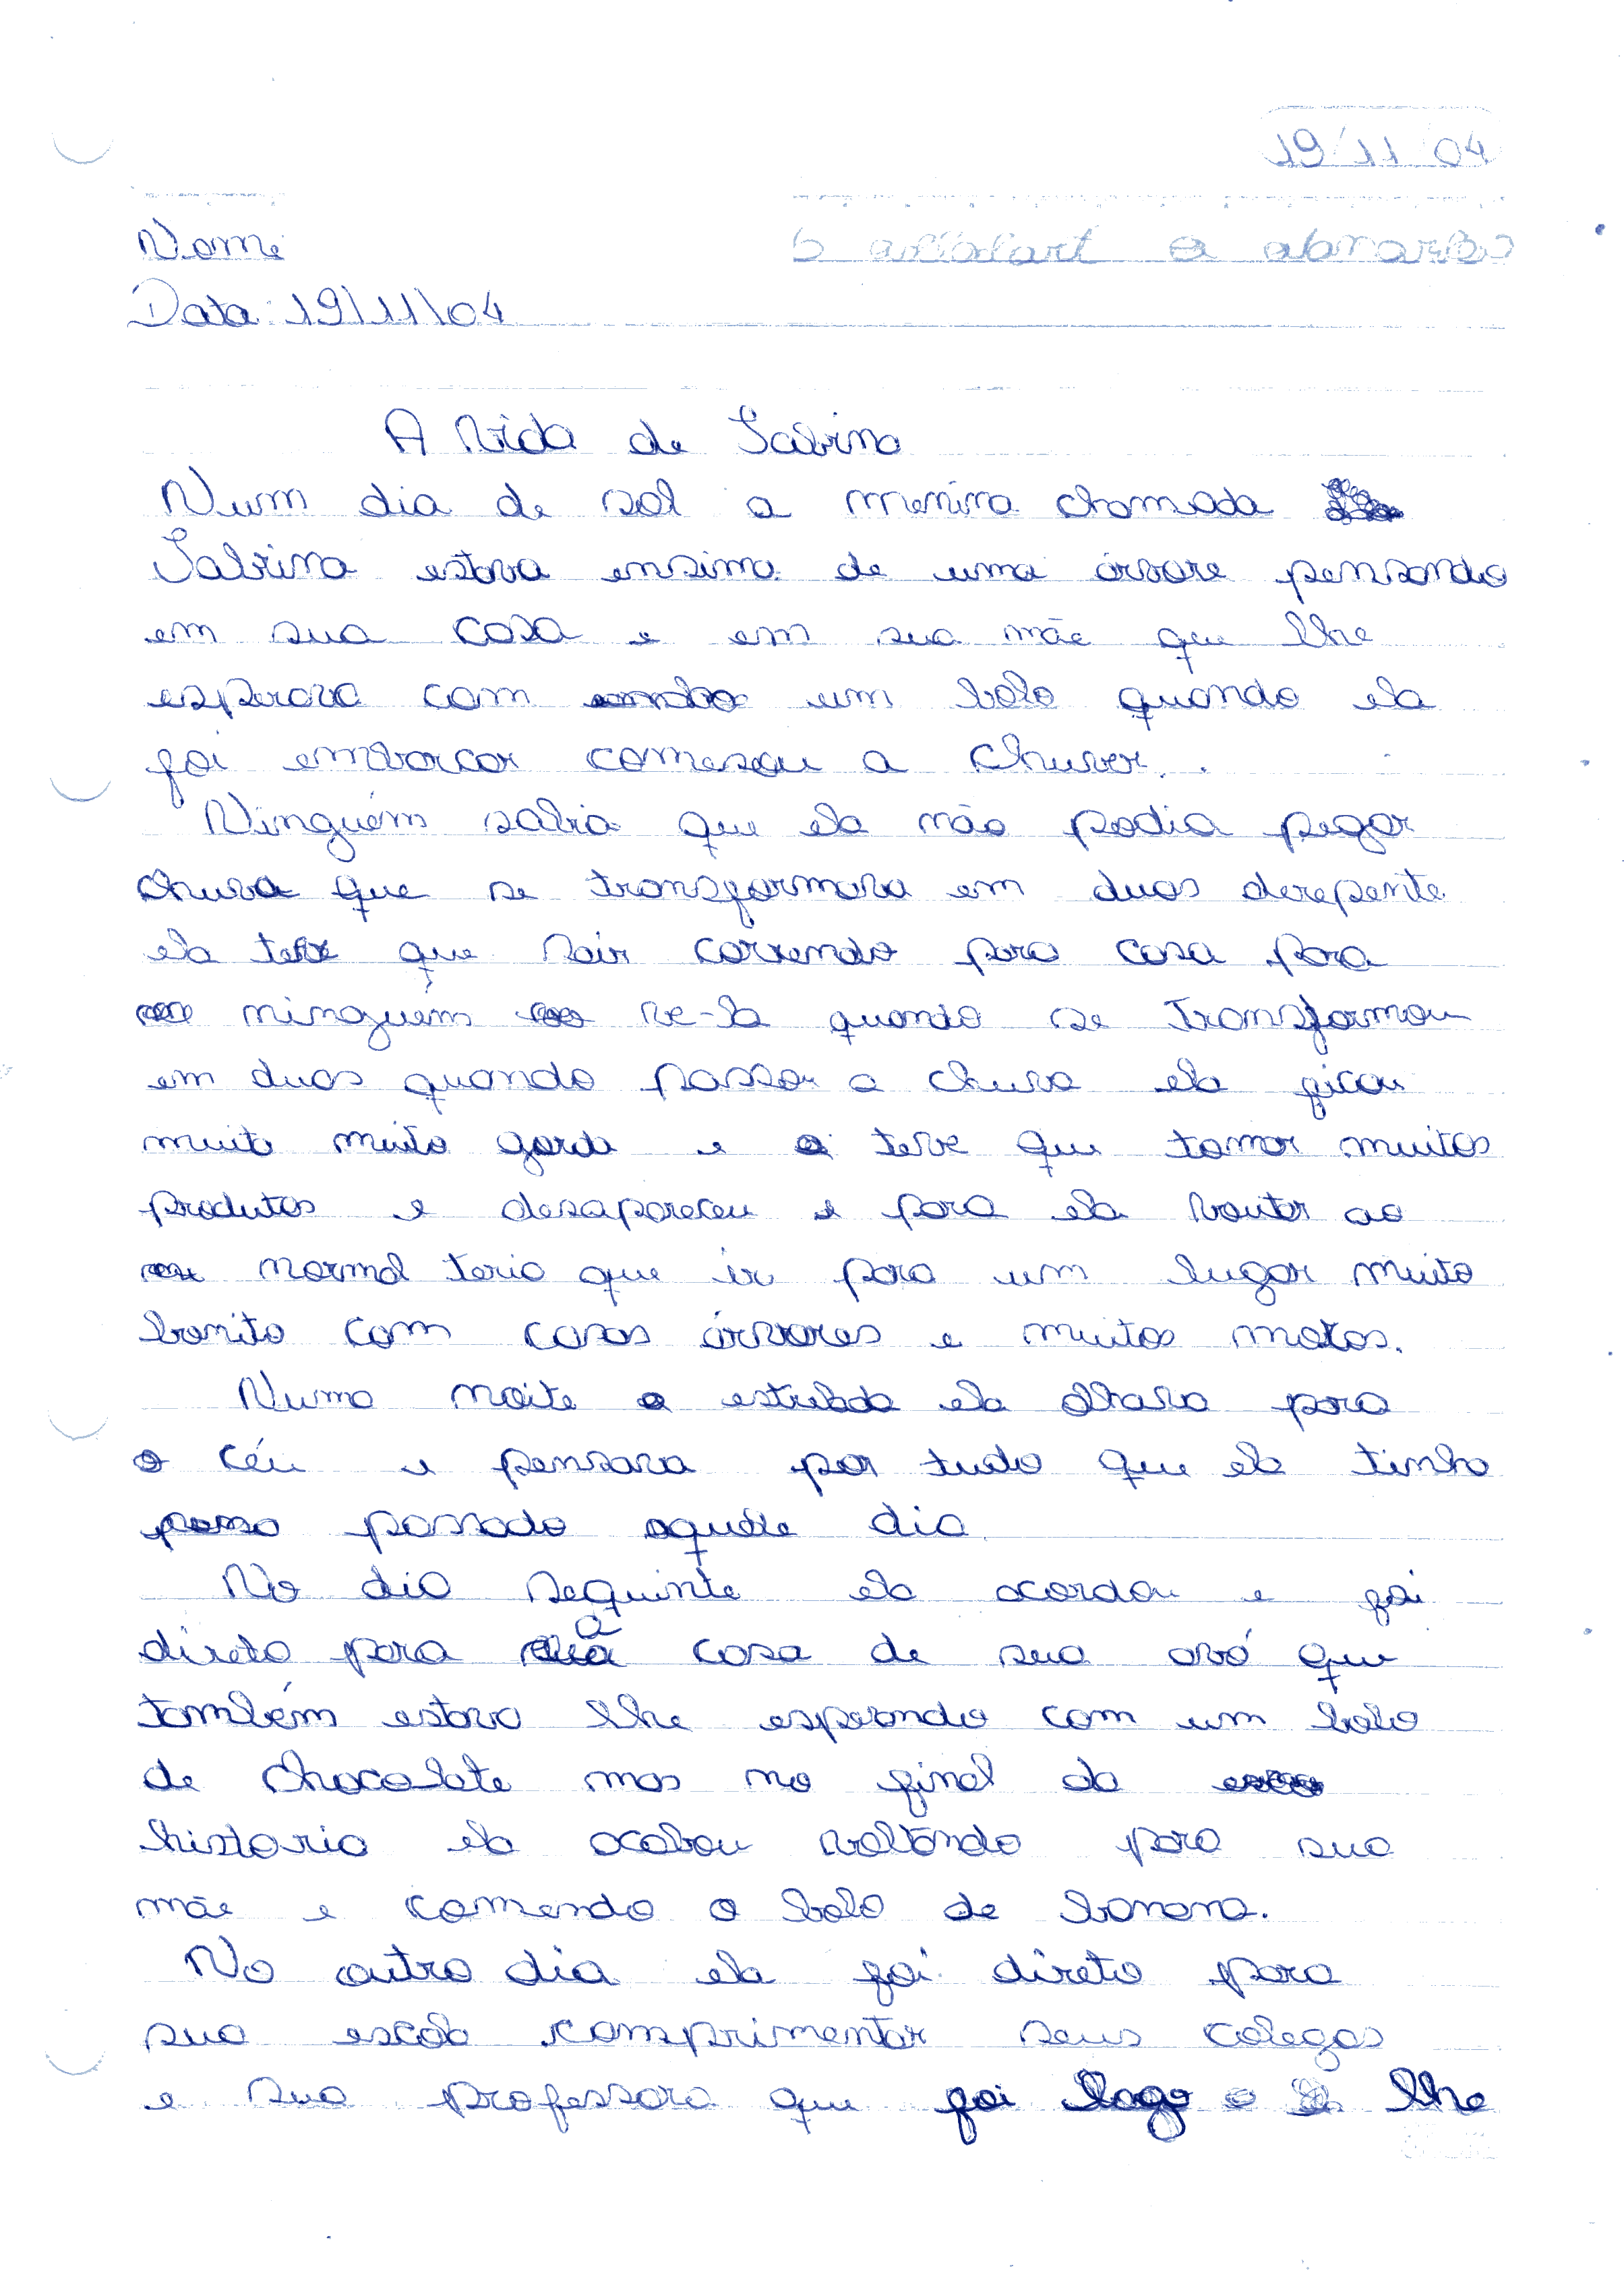 19 11 04
Nome
Data: 19/11/04
A vida de Sabrina
Num dia de sol a menina chamada
Sabrina estava ensima de uma árvore pensando
em sua casa e em sua mãe que lhe
esperava com um bolo quando ela
foi embarcar comesou a chuver.
Ninguém sabia que ela não podia pegar
chuva que se transformava em duas derepente
ela teve que sair correndo para casa para
ninguém ve-la quando se transformou
em duas quando passou a chuva ela ficou
muito muito gorda e teve que tomar muitos
produtos e desapareceu e para ela voutar ao
normal teria que ir para um lugar muito
bonito com casas árvores e muitas matas.
Numa noite estrelada ela olhava para
o céu e pensava por tudo que ela tinha
passado aquele dia.
No dia seguinte ela acordou e foi
direto para a casa de sua avó que
também estava lhe esperando com um bolo
de chocolate mas no final da
historia ela acabou voltando para sua
mãe e comendo o bolo de banana.
No outro dia ela foi direto para
sua escola comprimentar seus colegas
e sua professora que foi logo lhe